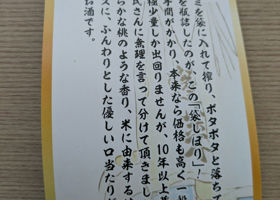 ミを袋に入れて搾り、ポタポタと落ちて
を瓶詰したのが、この「袋しぼり」！
手間がかかり、本来なら価格も高く、一般
極少量しか出回りませんが、10年以上
氏さんに無理を言って分けて頂きまし
らかな桃のような香り、米に由来する
スに、ふんわりとした優しい口当たり
お酒です。